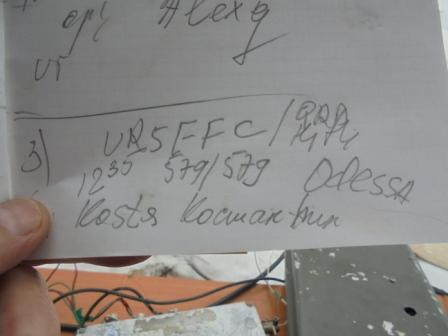 opr Alexg
ur
3) UR5FFC/QRP
12³⁵ 579/579 Odessa
Kostя Костянтин